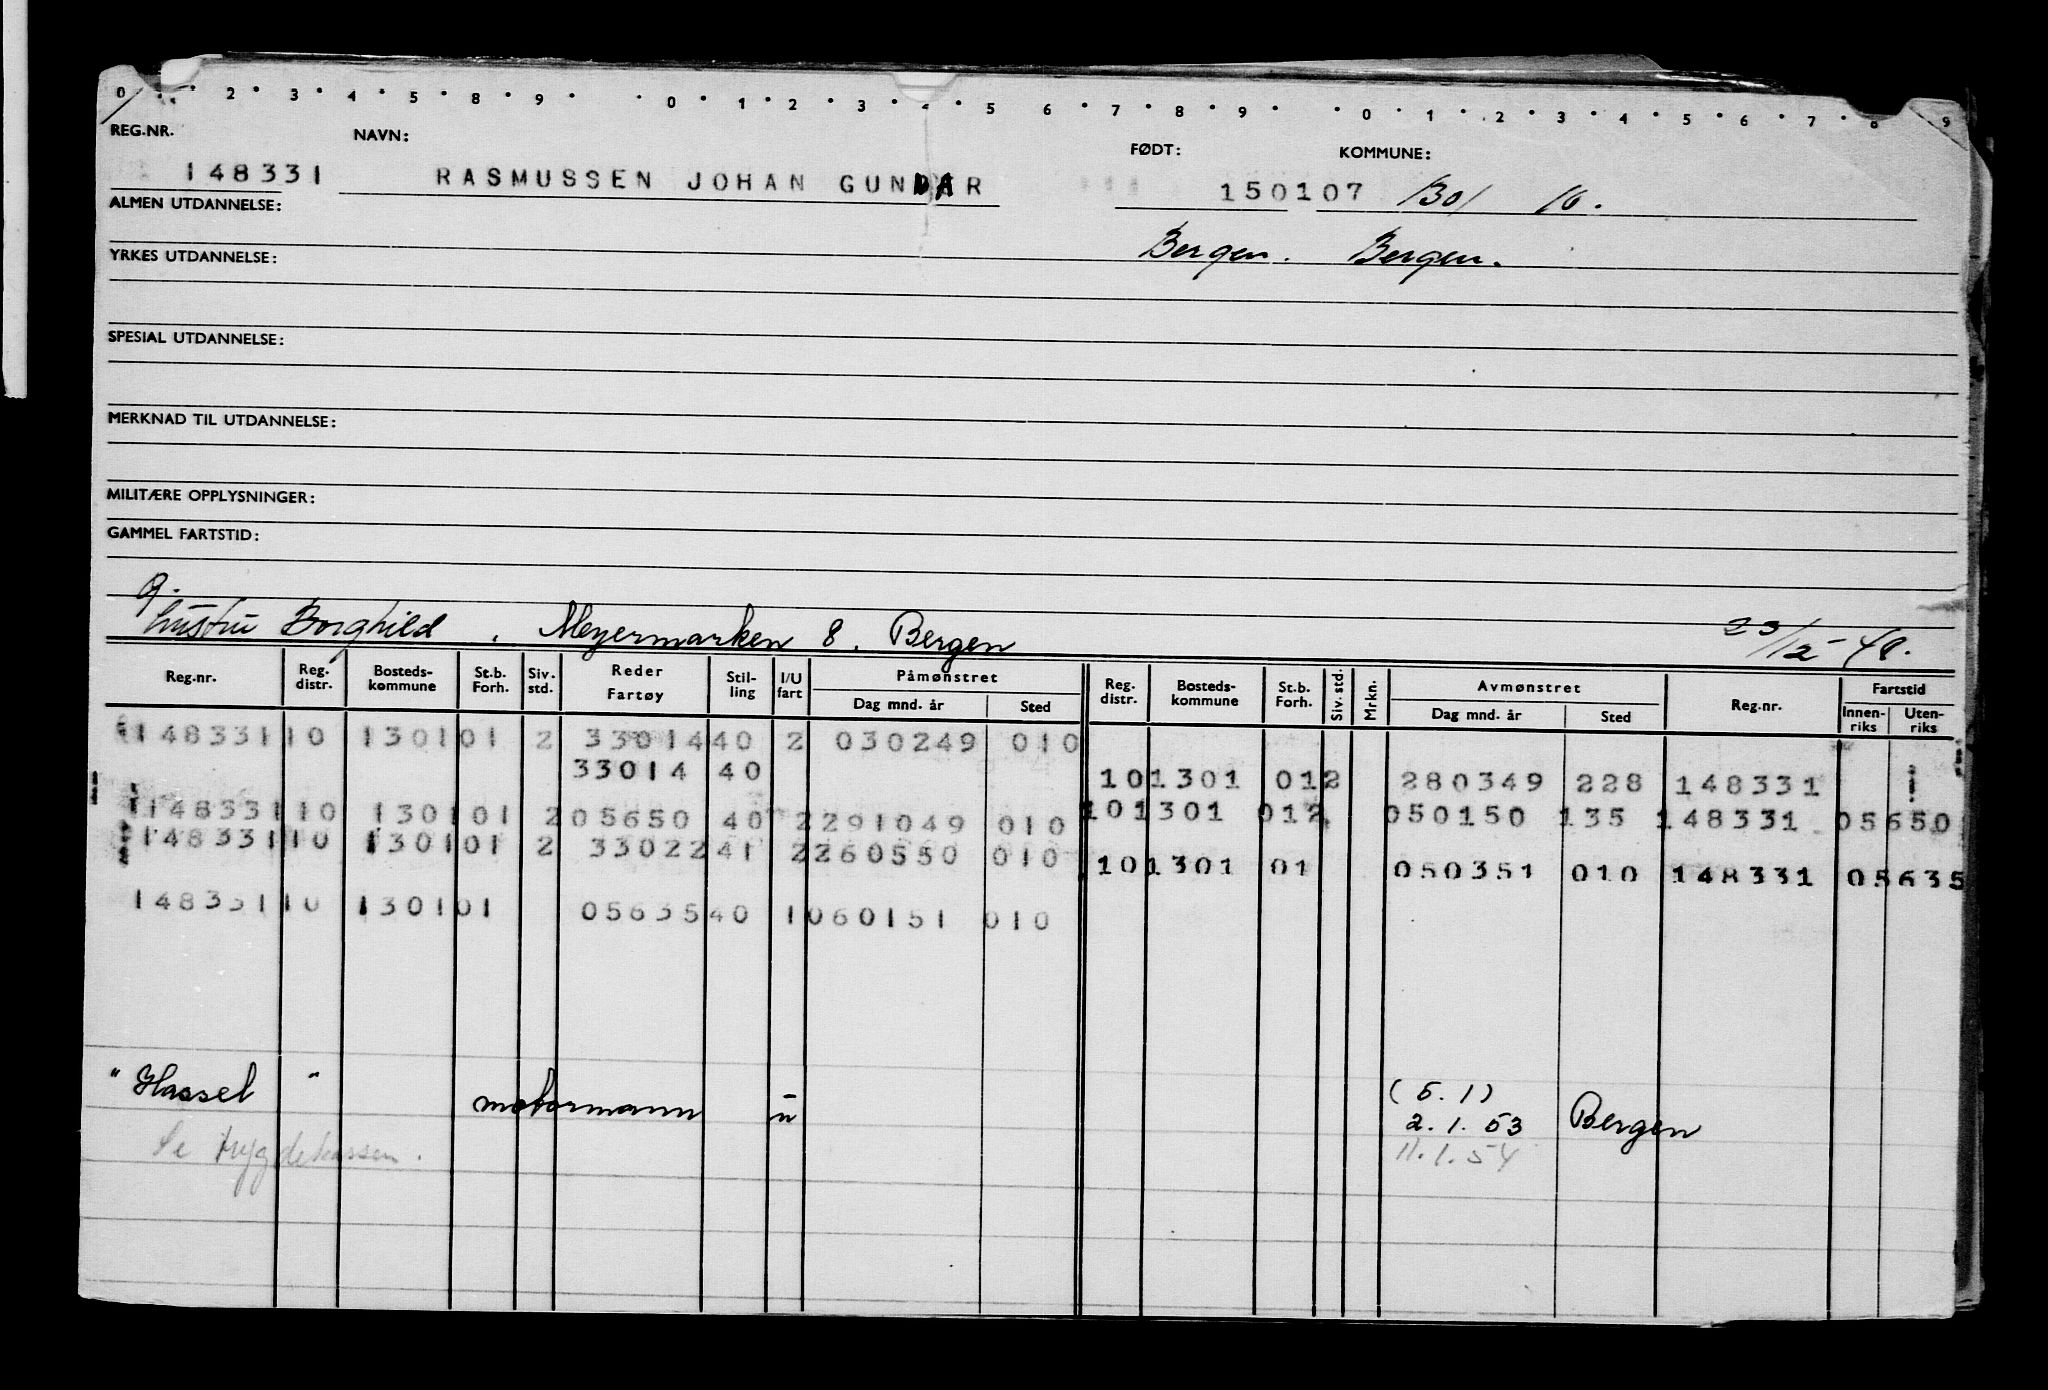 0 2 3 4 5 8 9 0 1 2 3 4 5 6 7 8 9 0 1 2 3 4 5 6 7 8 9
REG.NR. NAVN: FØDT: KOMMUNE:
148331 RASMUSSEN JOHAN GUNDAR 150107 1301 10.
ALMEN UTDANNELSE:
Bergen. Bergen.
YRKES UTDANNELSE:
SPESIAL UTDANNELSE:
MERKNAD TIL UTDANNELSE:
MILITÆRE OPPLYSNINGER:
GAMMEL FARTSTID:
g.
hustru Borghild. Meyermarken 8. Bergen
Reg.nr. Reg. distr. Bosteds-kommune St.b. Forh. Siv. std. Reder Fartøy Stil-ling I/U fart Påmønstret Dag mnd. år Sted Reg. distr. Bosteds-kommune St.b. Forh. Siv. std. Mrkn. Avmønstret Dag mnd. år Sted Reg.nr. Fartstid Innen-riks Uten-riks
148331 10 1301 01 2 33014 40 2 030249 010
33014 40 10 1301 01 2 280349 228 148331
148331 10 1301 01 2 05650 40 2 291049 010 10 1301 01 2 050150 135 148331 05650
148331 10 1301 01 2 33022 41 2 260550 010 10 1301 01 050351 010 148331 05635
148331 10 1301 01 05635 40 1 060151 010
"Hassel" motormann u (5.1)
2.1.53 Bergen
Se trygdekassen. 11.1.54